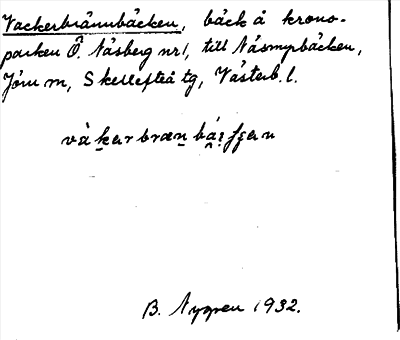 Vackerbrännbäcken, bäck å krono-
parken Ö. Näsberg nr 1, till Näsmyrbäcken,
Jörn sn, Skellefteå tg, Västerb. l.
B. Nygren 1932.